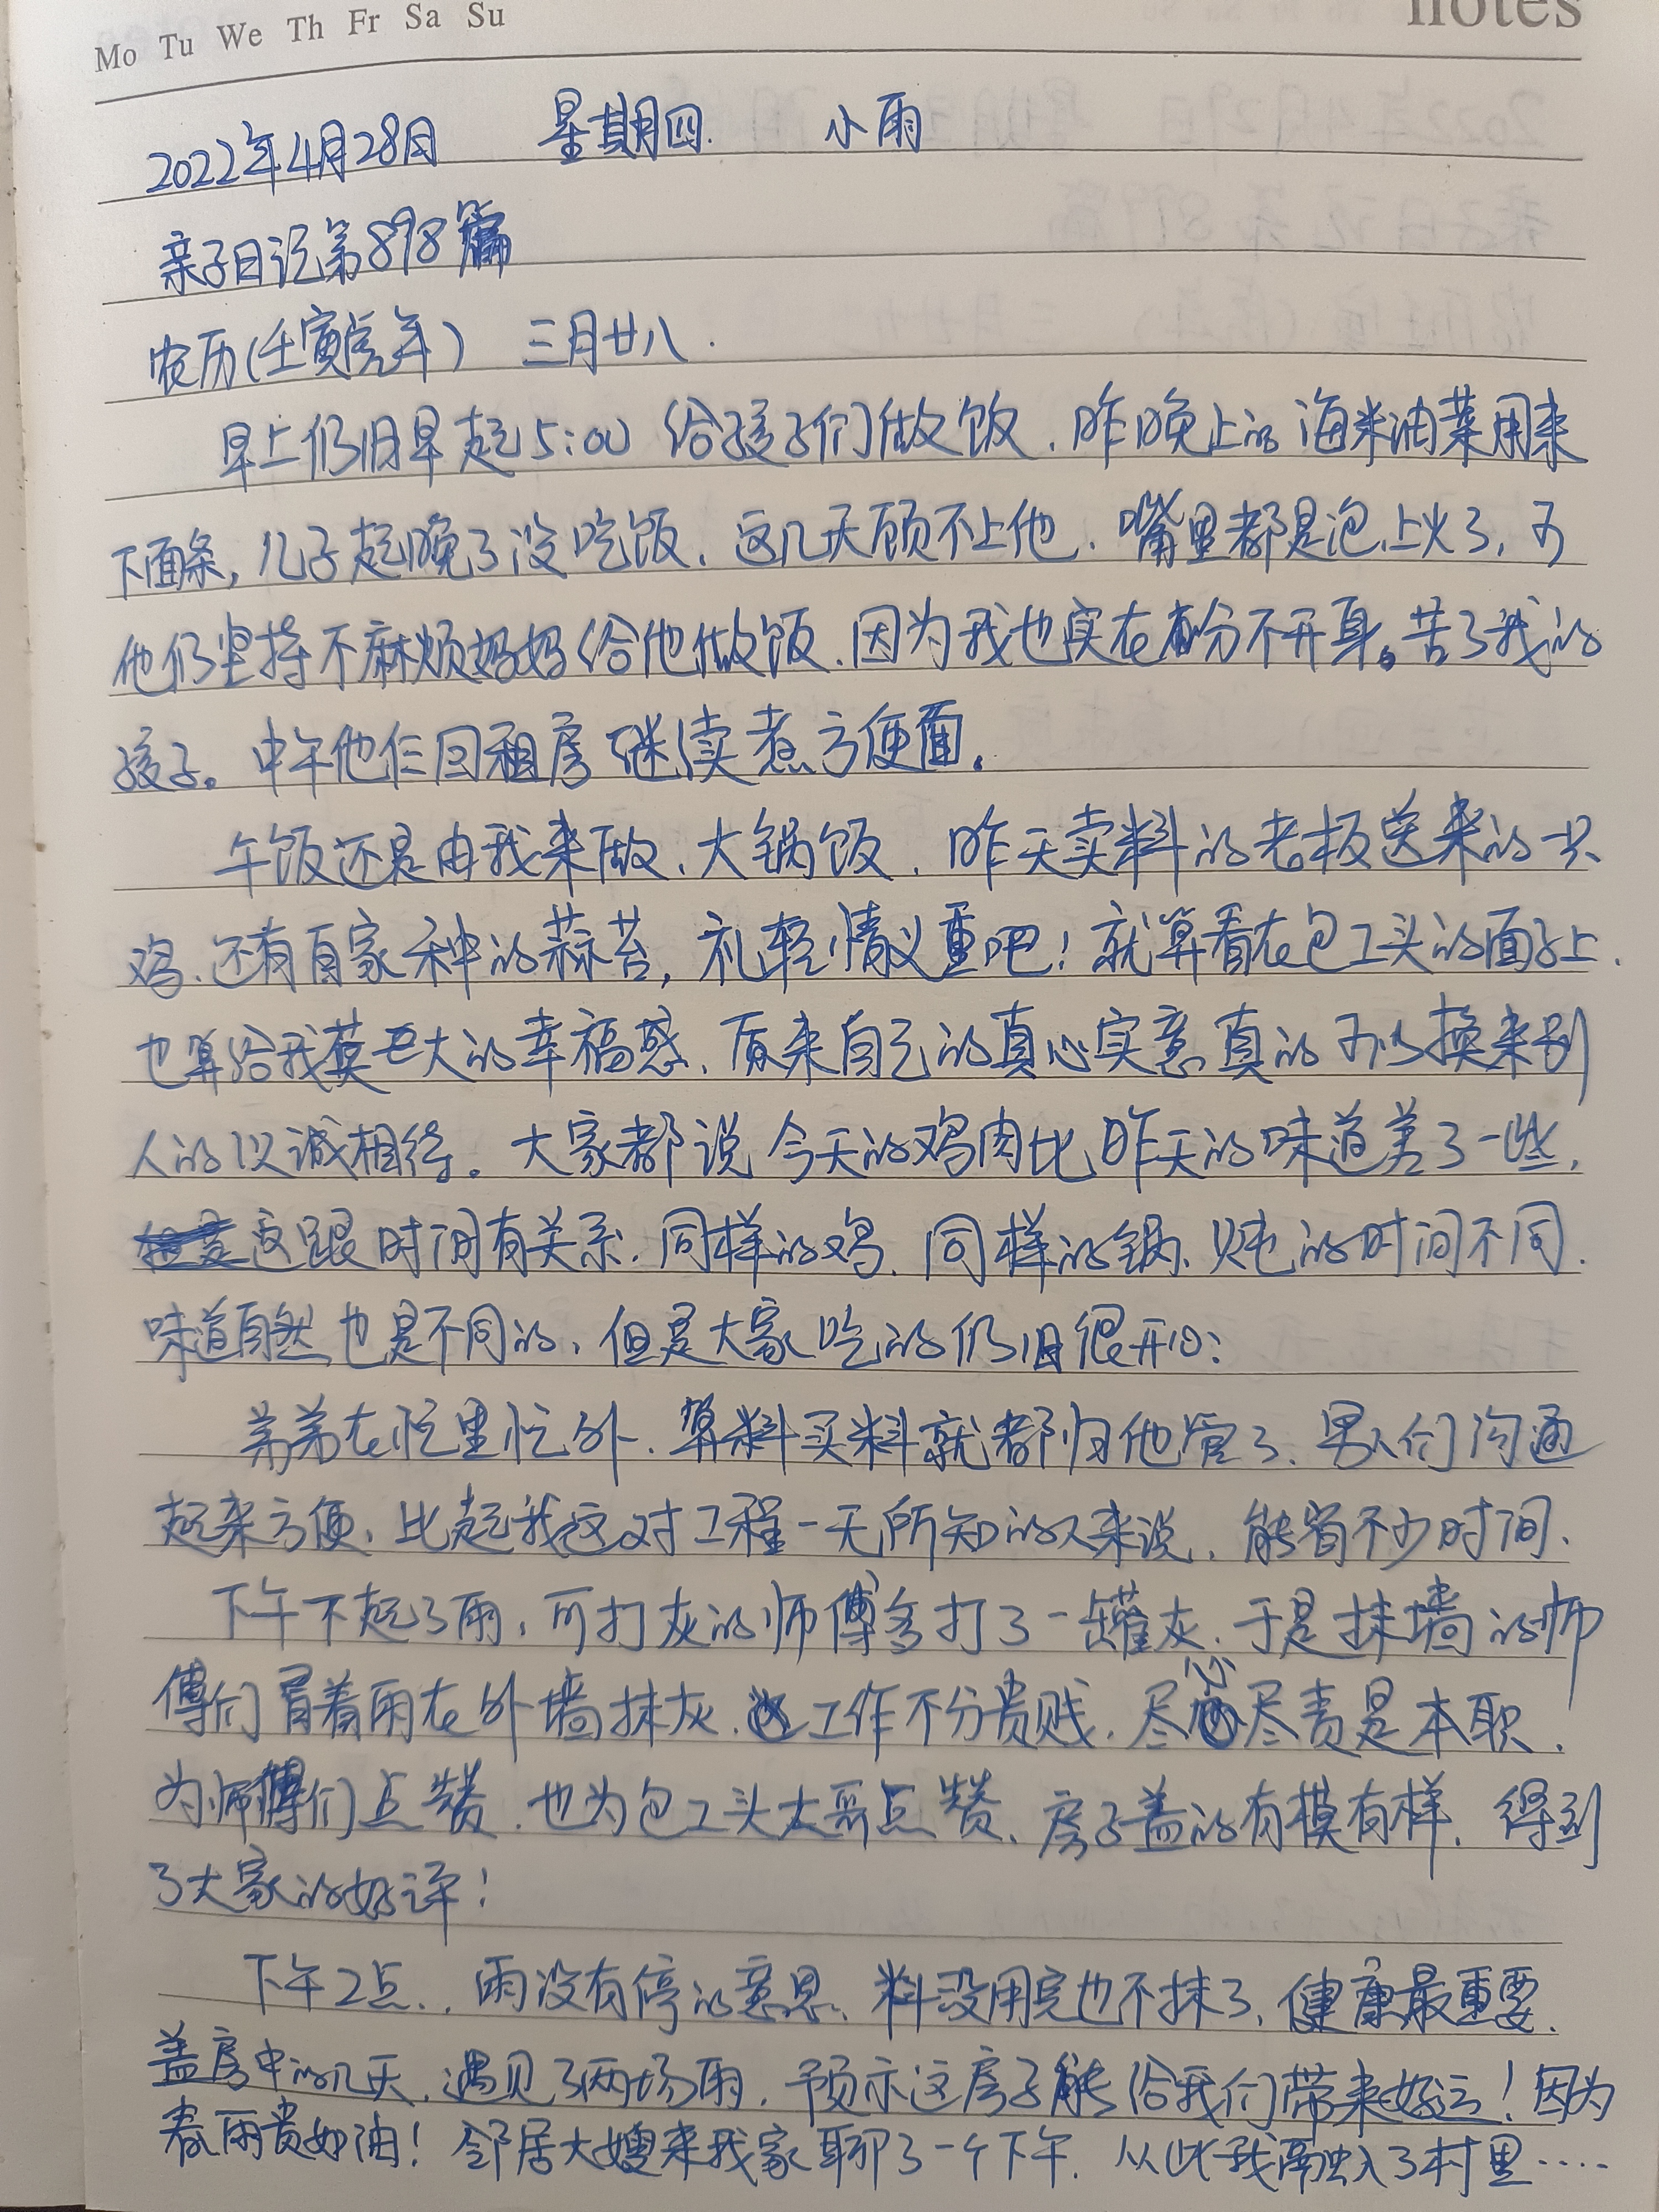 Mo Tu We Th Fr Sa Su
notes
2022年4月28日 星期四. 小雨
亲子日记第898篇
农历(壬寅虎年) 三月廿八.
早上仍旧早起5:00给孩子们做饭、昨晚上的海米油菜用来
下面条,儿子起晚了没吃饭、这几天顾不上他、嘴里都是泡上火了,可
他仍坚持不麻烦妈妈给他做饭、因为我也实在分不开身。苦了我的
孩子。中午他仨回租房继续煮方便面。
午饭还是由我来做、大锅饭、昨天卖料的老板送来的一只
鸡、还有自家种的蒜苔,礼轻情义重吧!就算看在包工头的面子上、
也算给我莫大的幸福感、原来自己的真心实意真的可以换来别
人的以诚相待。大家都说今天的鸡肉比昨天的味道差了一些,
这跟时间有关系、同样的鸡、同样的锅、炖的时间不同、
味道自然也是不同的、但是大家吃的仍旧很开心:
弟弟在忙里忙外、算料买料就都归他管了、男人们沟通
起来方便、比起我这对工程一无所知的人来说、能省不少时间、
下午下起了雨,可打灰的师傅多打了一罐灰、于是抹墙的师
傅们冒着雨在外墙抹灰、工作不分贵贱、尽心尽责是本职、
为师傅们点赞、也为包工头大哥点赞、房子盖的有模有样、得到
了大家的好评!
下午2点..雨没有停的意思、料没用完也不抹了、健康最重要、
盖房中的几天、遇见了两场雨、预示这房子能给我们带来好运!因为
春雨贵如油!邻居大嫂来我家聊了一个下午、从此我融入了村里....